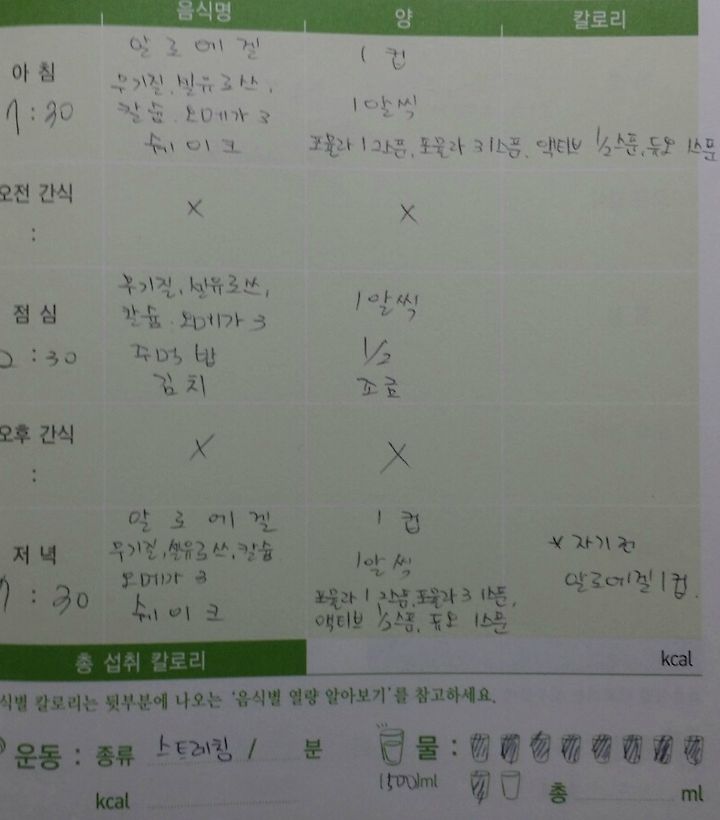 음식명 양 칼로리
아침
7:30
알로에겔 1컵
무기질, 셀유로쓰,
칼슘. 오메가 3 1알씩
쉐이크 포뮬라 1 2스푼, 포뮬라 3 1스픔, 액티브 1/2스푼, 듀오 1스푼
오전 간식
:
X X
점심
2:30
무기질, 셀유로쓰,
칼슘. 오메가 3 1알씩
주먹밥 1/2
김치 조금
오후 간식
:
X X
저녁
7:30
알로에겔 1컵
무기질, 셀유로쓰, 칼슘
오메가 3 1알씩
쉐이크 포뮬라 1 2스픔, 포뮬라 3 1스푼,
액티브 1/2스픔, 듀오 1스푼
* 자기전
알로에겔 1컵.
총 섭취 칼로리 kcal
식별 칼로리는 뒷부분에 나오는 '음식별 열량 알아보기'를 참고하세요.
운동 : 종류 스트레칭 / 분 물 :
1500ml
kcal 총 ml